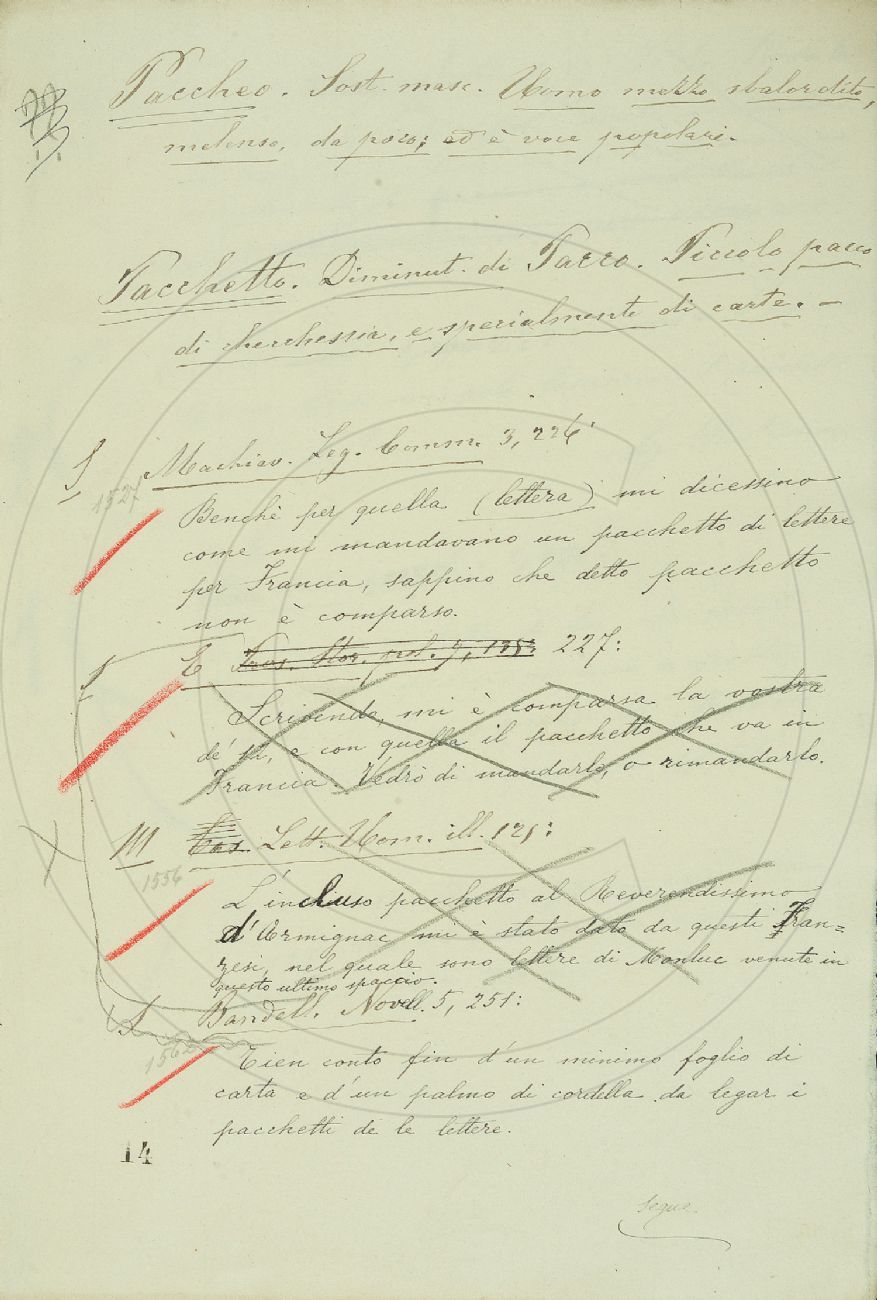 Paccheo. Sost. masc. Uomo mezzo sbalordito,
melenso, da poco; ed è voce popolari.
Pacchetto. Diminut. di Pacco. Piccolo pacco
di checchessia, e specialmente di carte. –
Machiav. Leg. Comm. 3, 226:
1527
Benchè per quella (lettera) mi dicessino
come mi mandavano un pacchetto di lettere
per Francia, sappino che detto pacchetto
non è comparso.
E 227:
Scrivendo, mi è comparsa la vostra
de' , e con quella il pacchetto che va in
Francia. Vedrò di mandarlo, o rimandarlo.
III Lett. Uom. ill. 121:
1556
L'incluso pacchetto al Reverendissimo
d'Armignac mi è stato dato da questi Fran=
zesi, nel quale sono lettere di Monluc venute in
questo ultimo spaccio.
Bandell. Novell. 5, 251:
1562
Tien conto fin d'un minimo foglio di
carta e d'un palmo di cordella da legar i
pacchetti de le lettere.
14
segue